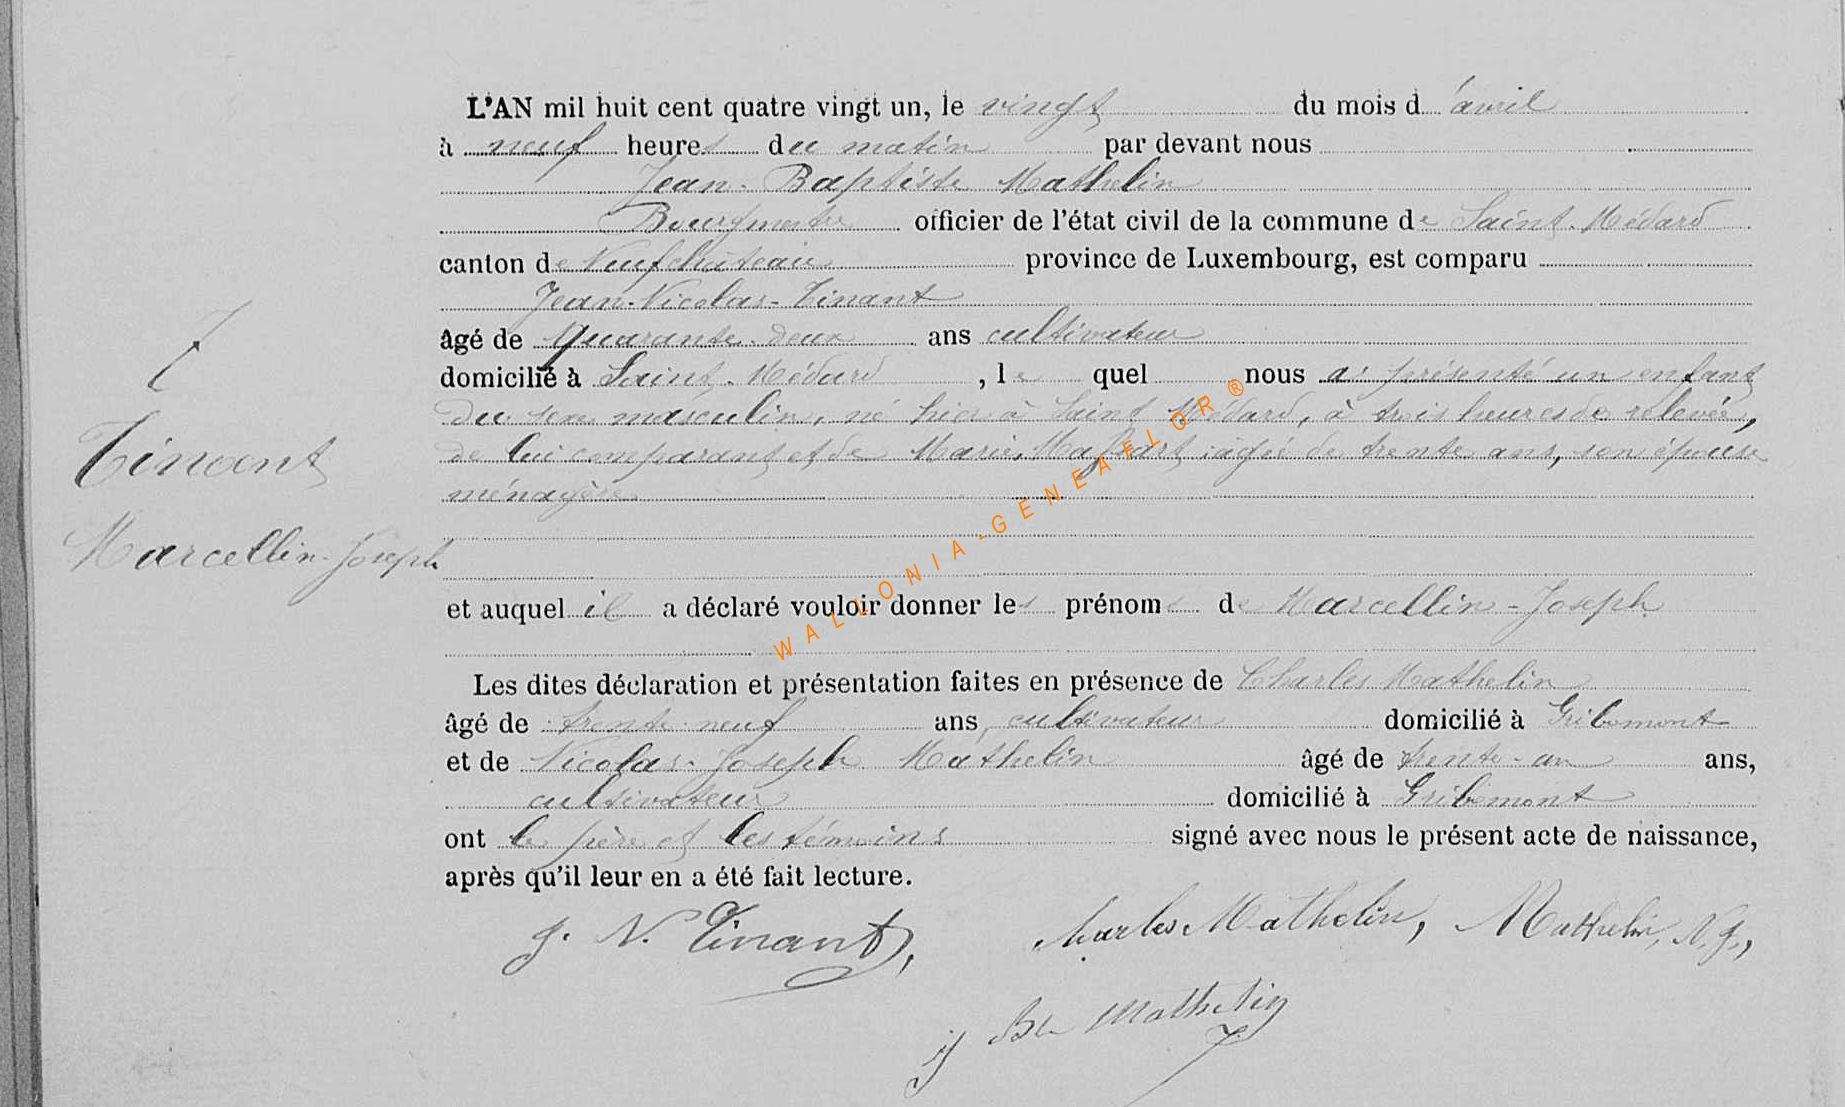 L'AN mil huit cent quatre vingt un, le vingt du mois d'avril
à neuf heures du matin par devant nous
Jean-Baptiste Mathelin
Bourgmestre officier de l'état civil de la commune de Saint-Médard
canton de Neufchâteau province de Luxembourg, est comparu
Jean-Nicolas-Tinant
âgé de quarante-deux ans cultivateur
domicilié à Saint-Médard, lequel nous a présenté un enfant
du sexe masculin, né hier à Saint Médard, à trois heures de relevée,
de lui comparant et de Marie, âgée de trente ans, son épouse
ménagère
7
Tinant
Marcellin-Joseph
et auquel il a déclaré vouloir donner les prénoms de Marcellin-Joseph
Les dites déclaration et présentation faites en présence de Charles Mathelin
âgé de trente-neuf ans, cultivateur domicilié à Gribomont
et de Nicolas-Joseph Mathelin âgé de trente-un ans,
cultivateur domicilié à Gribomont
ont le père et les témoins signé avec nous le présent acte de naissance,
après qu'il leur en a été fait lecture.
J. N. Tinant, Charles Mathelin, Mathelin, N. J.,
J Bte Mathelin
WALLONIA-GENEAFLOR®